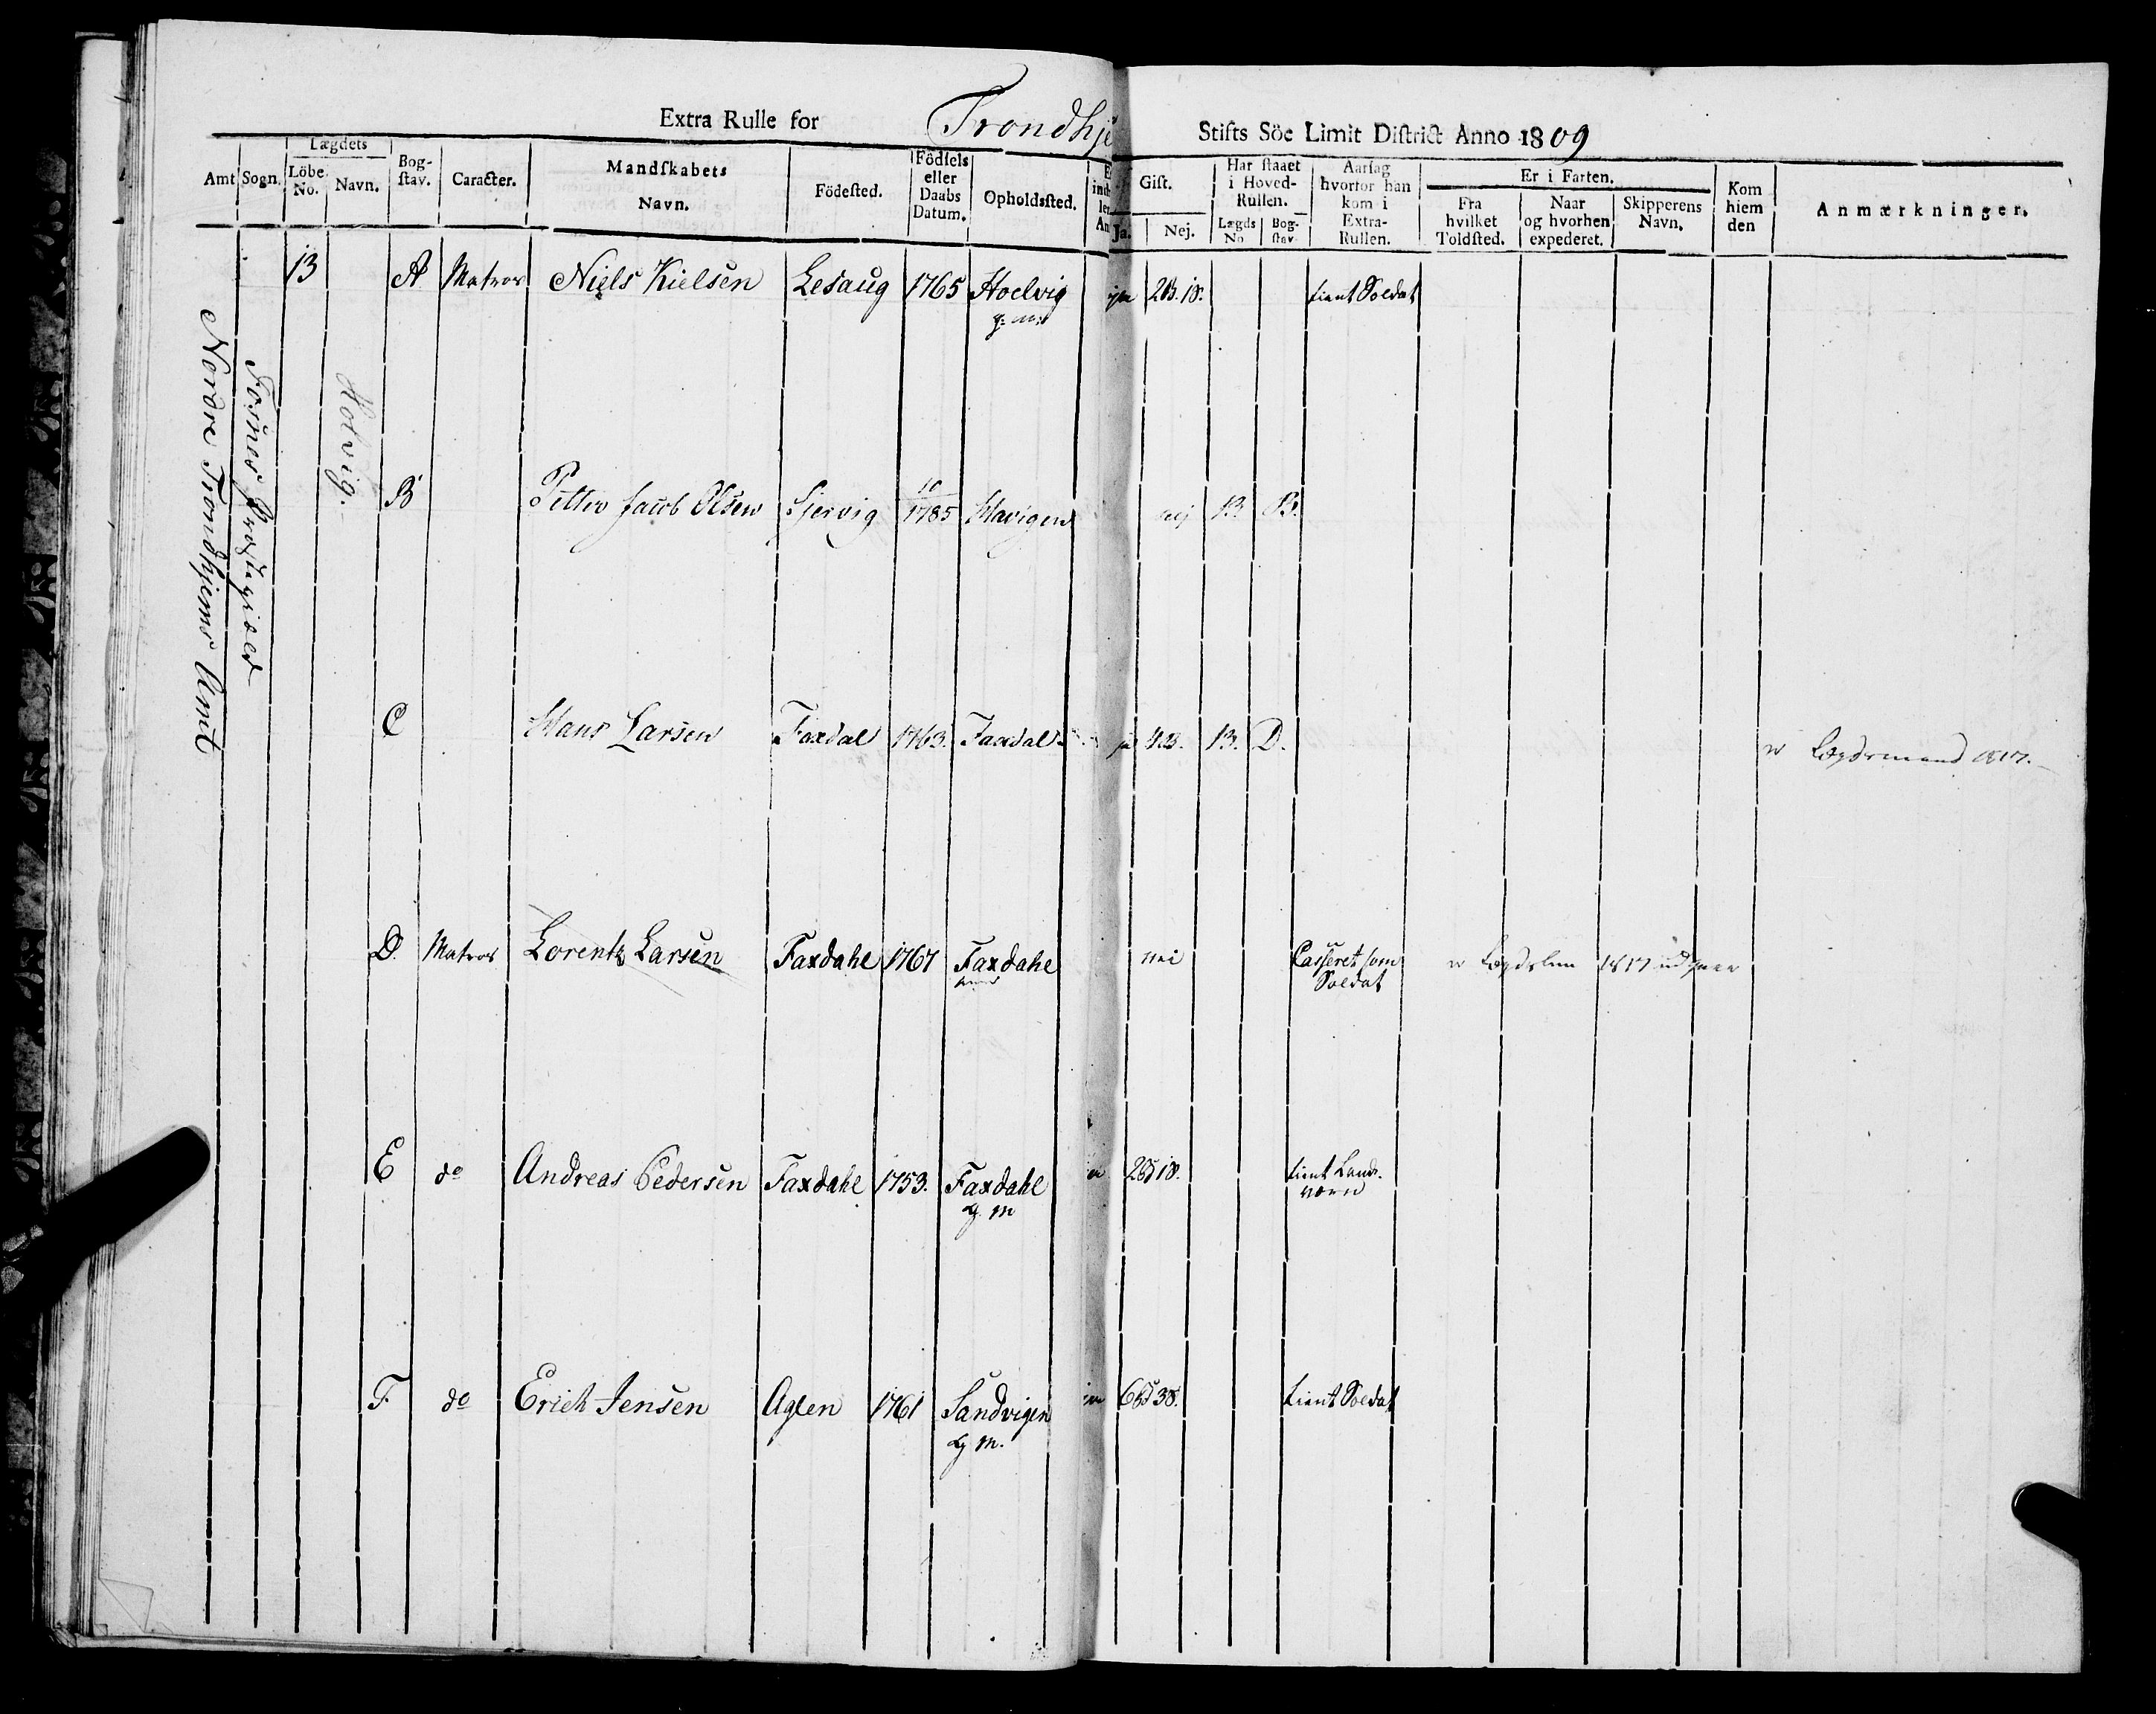 Extra Rulle for Trondhje Stifts Söe Limit District Anno 1809
Amt Sogn. Lægdets Löbe No. Navn. Bog-stav. Caracter. Mandskabets Navn. Födested. Födsels eller Daabs Datum. Opholdssted. Gift. Ja. Nej. Har staaet i Hoved-Rullen. Lægds No. Bog-stav. Aarsag hvorfor han kom i Extra-Rullen. Er i Farten. Fra hvilket Toldsted. Naar og hvorhen expederet. Skipperens Navn. Kom hiem den Anmærkninger.
Nordre Trondhjems Amt
Fosnes Præstegield
Hoevig.
13 A Matros Niels Kielsen Lesaug 1765 Hoelvig 2B. 18. tient Soldat
g: m:
B Petter Jacob Olsen Sjervig 10/1785 Havigen nej 13 B.
C Hans Larsen Faxdal 1763. Faxdal ja 4B. 13. D. Lægdsmand 1817.
D. Matros Lorentz Larsen Faxdahl 1767 Faxdahl nei Casseret som Soldat 1817
E do Andreas Pedersen Faxdahl 1753. Faxdahl tient Land-værn
g. m
F. do Erich Jensen Aglen 1761 Sandvigen tient Soldat
g m.